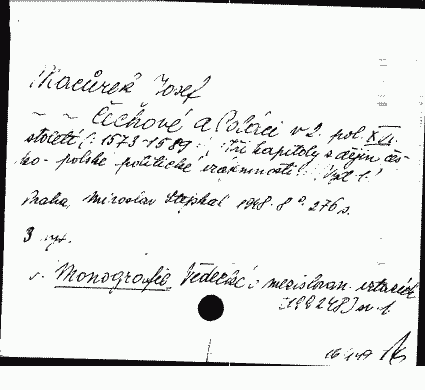 Macůrek Josef
~ ~ Čechové a Poláci v 2. pol. XVI.
století (: 1573-1589 :) Tři kapitoly z dějin čes-
ko-polské politické vzájemnosti. Vyd. 1.
Praha, Miroslav Stejskal 1948. 8° 276 s.
3 vyt.
v. Monografie Vědecké o mezislovan. vztazích
(199248) sv. 1